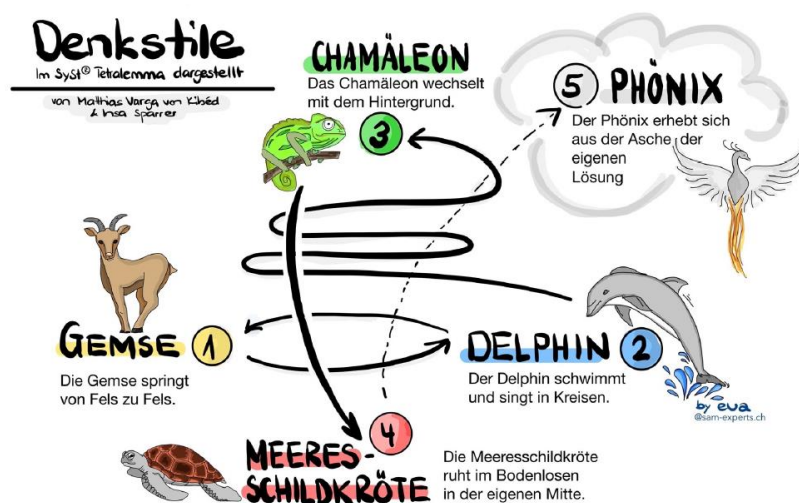 Denkstile
Im SySt® Tetralemma dargestellt
von Matthias Varga von Kibéd
& Insa Sparrer
CHAMÄLEON
Das Chamäleon wechselt
mit dem Hintergrund.
3
5 PHÖNIX
Der Phönix erhebt sich
aus der Asche der
eigenen
Lösung
GEMSE 1
Die Gemse springt
von Fels zu Fels.
DELPHIN 2
Der Delphin schwimmt
und singt in Kreisen.
by eva
@sam-experts.ch
4
MEERES-
SCHILDKRÖTE
Die Meeresschildkröte
ruht im Bodenlosen
in der eigenen Mitte.